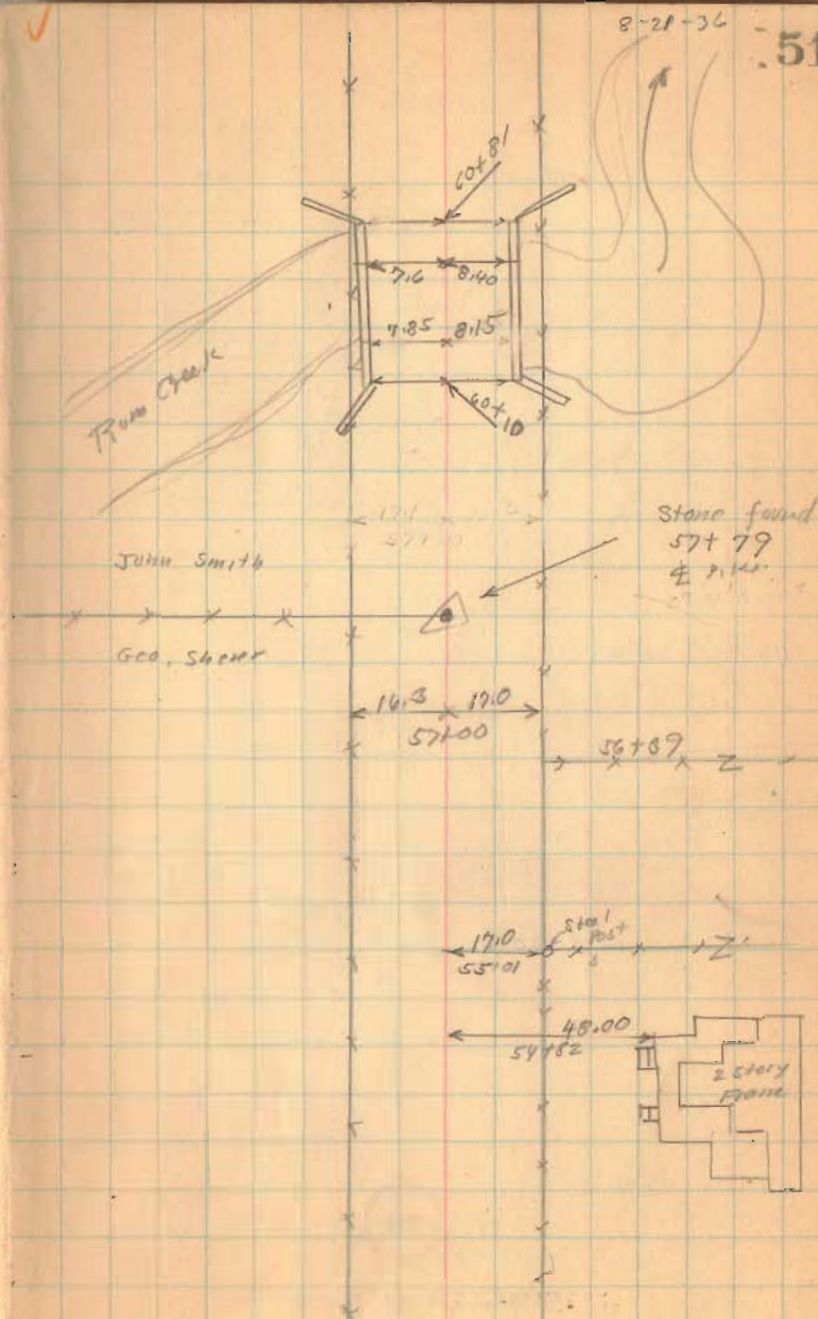 8-28-36
51
60+81
7.6 8.40
7.85 8.15
60+10
Rum Creek
Stone found
57+79
John Smith
Geo. Sherer
16.3 17.0
57+00
56+89
Steel
Post
17.0
55+01
48.00
54+82
2 Story
Frame